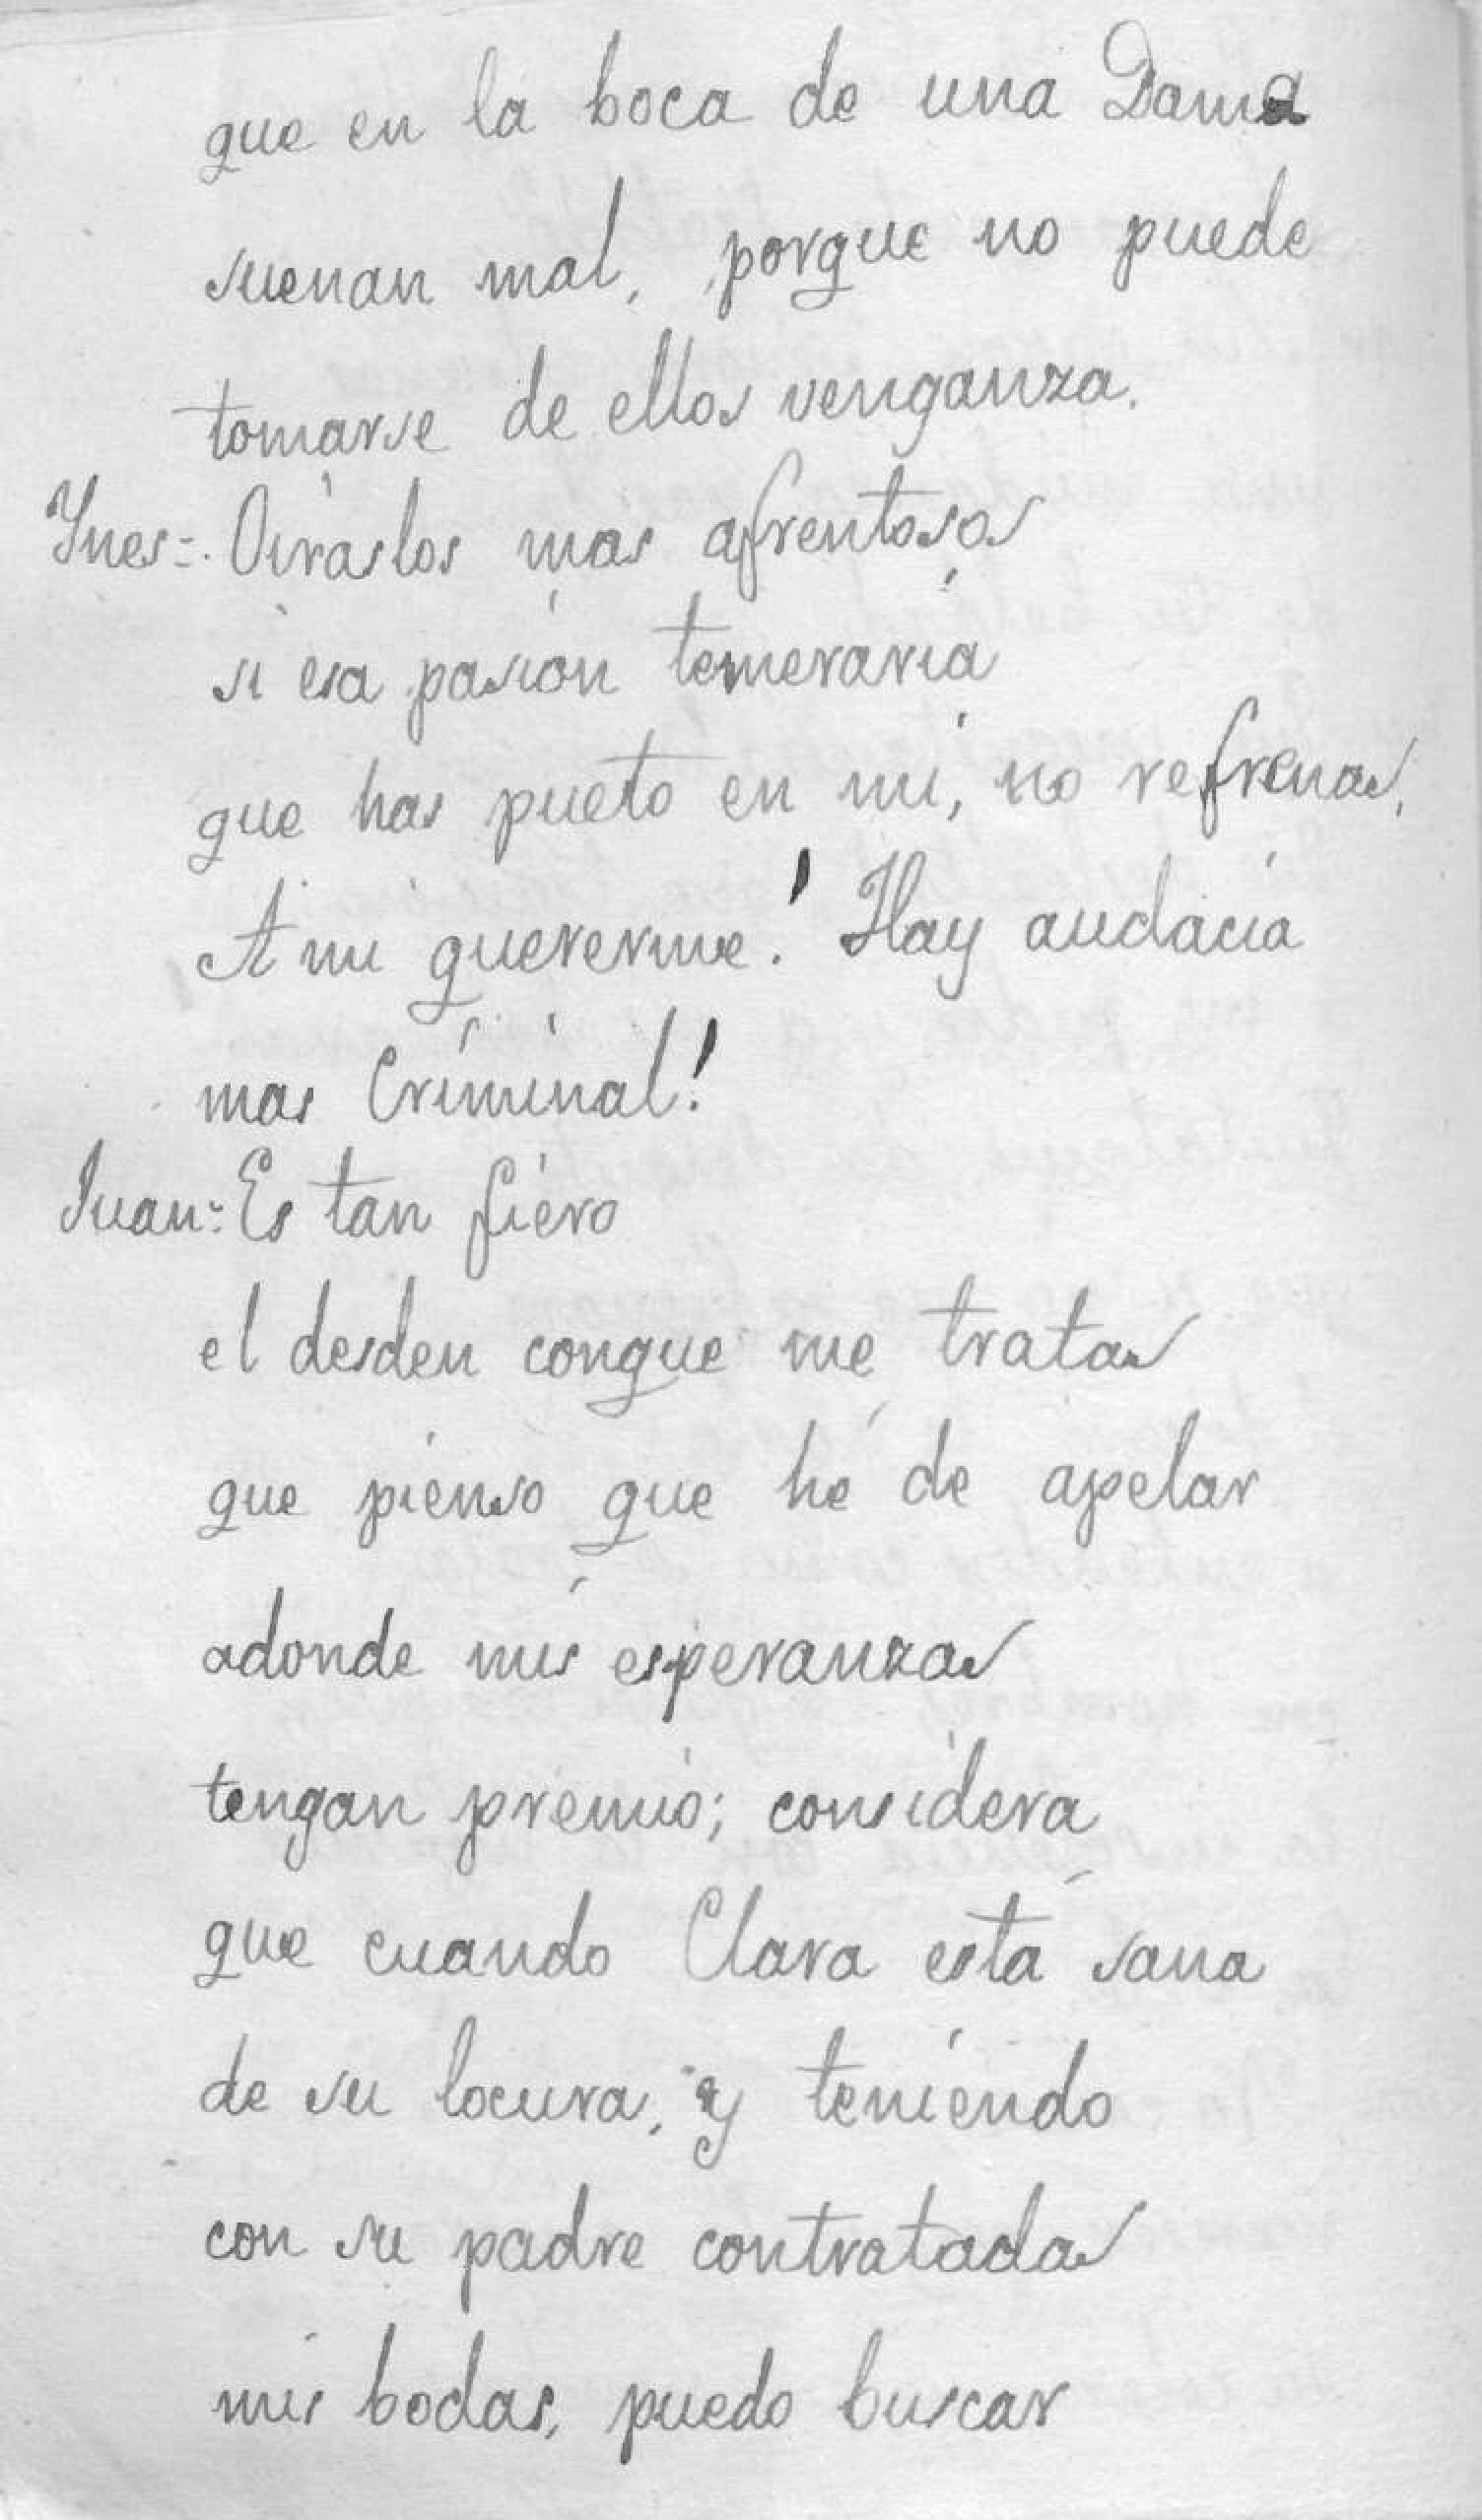 que en la boca de una Dama
suenan mal, porque no puede
tomarse de ellos venganza.
Ynes=. Oiraslos mas afrentosos
si esa pasion temeraria
que has pueto en mi, no refrenas,
A mi quererme! Hay audacia
mas Criminal!
Juan= Es tan fiero
el desden conque me tratas
que pienso que hé de apelar
adonde mis esperanzas
tengan premio; considera
que cuando Clara está sana
de su locura, y teniendo
con su padre contratadas
mis bodas, puedo buscar